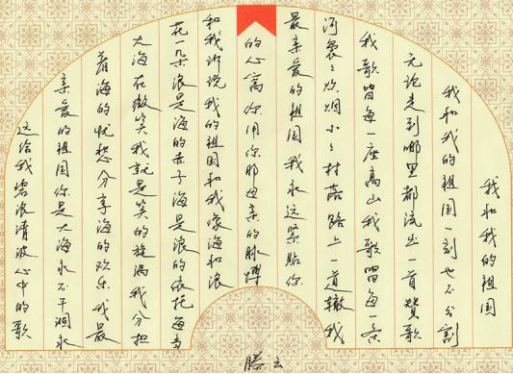 我和我的祖国
我和我的祖国一刻也不分割
无论走到哪里都流出一首赞歌
我歌唱每一座高山我歌唱每一条
河袅〻炊烟小〻村落路上一道辙我
最亲爱的祖国我永远紧贴你
的心窝你用你那母亲的脉搏
和我诉说我的祖国和我像海和浪
花朵浪是海的赤子海是浪的依托每当
大海在微笑我就是笑的旋涡我分担
着海的忧愁分享海的欢乐我最
亲爱的祖国你是大海永不干涸永
远给我碧浪清波心中的歌
滕云